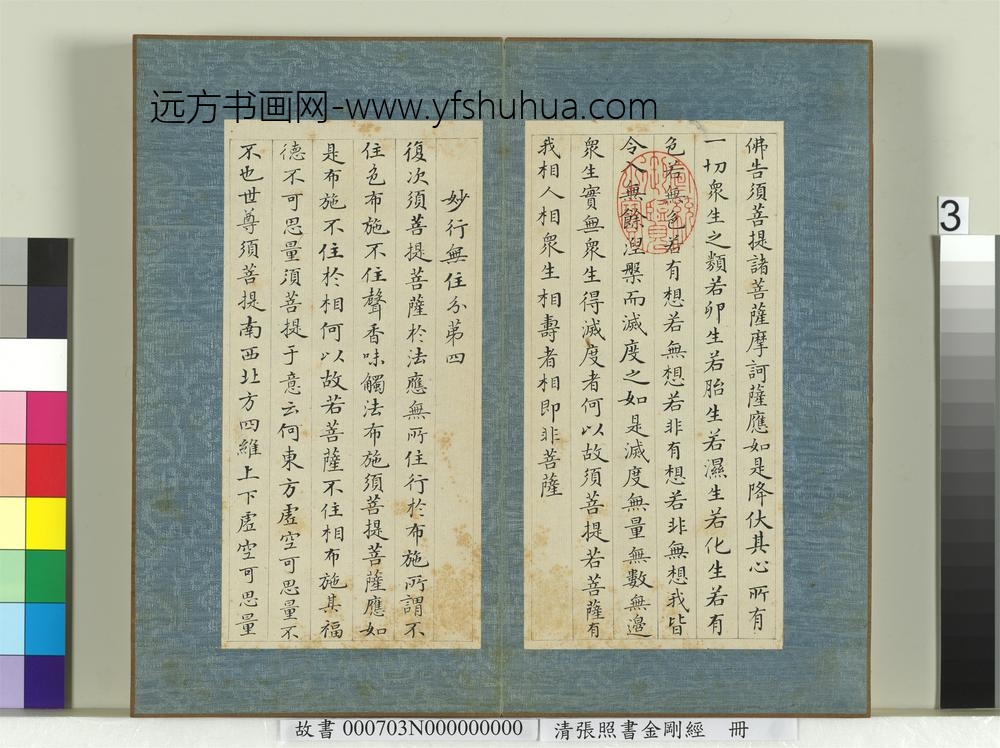 远方书画网-www.yfshuhua.com
佛告須菩提諸菩薩摩訶薩應如是降伏其心所有
一切衆生之類若卵生若胎生若濕生若化生若有
色若無色若有想若無想若非有想若非無想我皆
令入無餘涅槃而滅度之如是滅度無量無數無邊
衆生實無衆生得滅度者何以故須菩提若菩薩有
我相人相衆生相壽者相即非菩薩
妙行無住分第四
復次須菩提菩薩於法應無所住行於布施所謂不
住色布施不住聲香味觸法布施須菩提菩薩應如
是布施不住於相何以故若菩薩不住相布施其福
德不可思量須菩提于意云何東方虛空可思量不
不也世尊須菩提南西北方四維上下虛空可思量
3
故書 000703N000000000 清張照書金剛經 冊